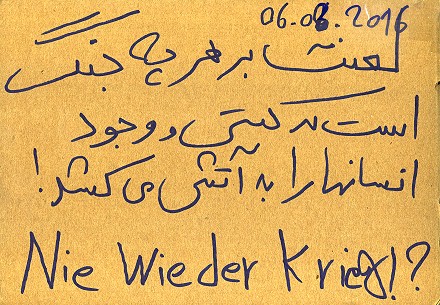 06.08.2016
لعنت بر هر چه جنگ
است که گیتی و وجود
انسانها را به آتش می کشد!
Nie Wieder Krieg!?